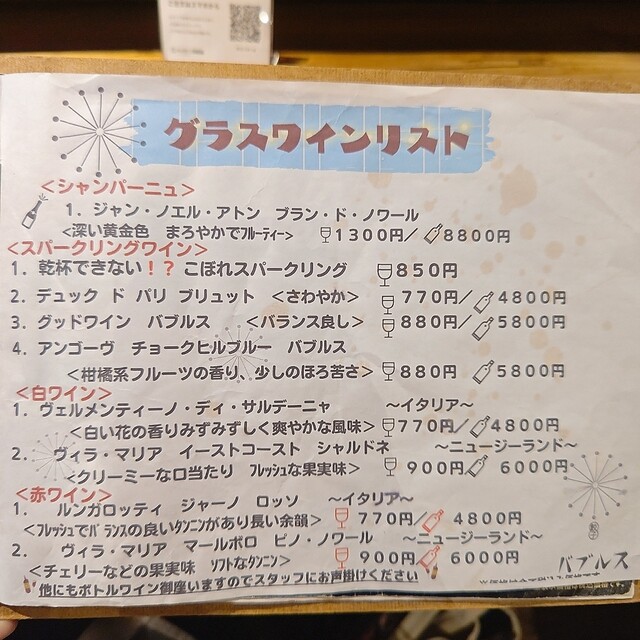 グラスワインリスト
＜シャンパーニュ＞
1. ジャン・ノエル・アトン ブラン・ド・ノワール
＜深い黄金色 まろやかでﾌﾙｰﾃｨｰ＞ 1300円／ 8800円
＜スパークリングワイン＞
1. 乾杯できない！？ こぼれスパークリング 850円
2. デュック ド パリ ブリュット ＜さわやか＞ 770円／ 4800円
3. グッドワイン バブルス ＜バランス良し＞ 880円／ 5800円
4. アンゴーヴ チョークヒルブルー バブルス
＜柑橘系フルーツの香り、少しのほろ苦さ＞ 880円 5800円
＜白ワイン＞
1. ヴェルメンティーノ・ディ・サルデーニャ ～イタリア～
＜白い花の香りみずみずしく爽やかな風味＞ 770円／ 4800円
2. ヴィラ・マリア イーストコースト シャルドネ ～ニュージーランド～
＜クリーミーな口当たり ﾌﾚｯｼｭな果実味＞ 900円／ 6000円
＜赤ワイン＞
1. ルンガロッティ ジャーノ ロッソ ～イタリア～
＜ﾌﾚｯｼｭでﾊﾞﾗﾝｽの良いﾀﾝﾆﾝがあり長い余韻＞ 770円／ 4800円
2. ヴィラ・マリア マールボロ ピノ・ノワール ～ニュージーランド～
＜チェリーなどの果実味 ｿﾌﾄなﾀﾝﾆﾝ＞ 900円／ 6000円
他にもボトルワイン御座いますのでスタッフにお声掛けください
バブルス